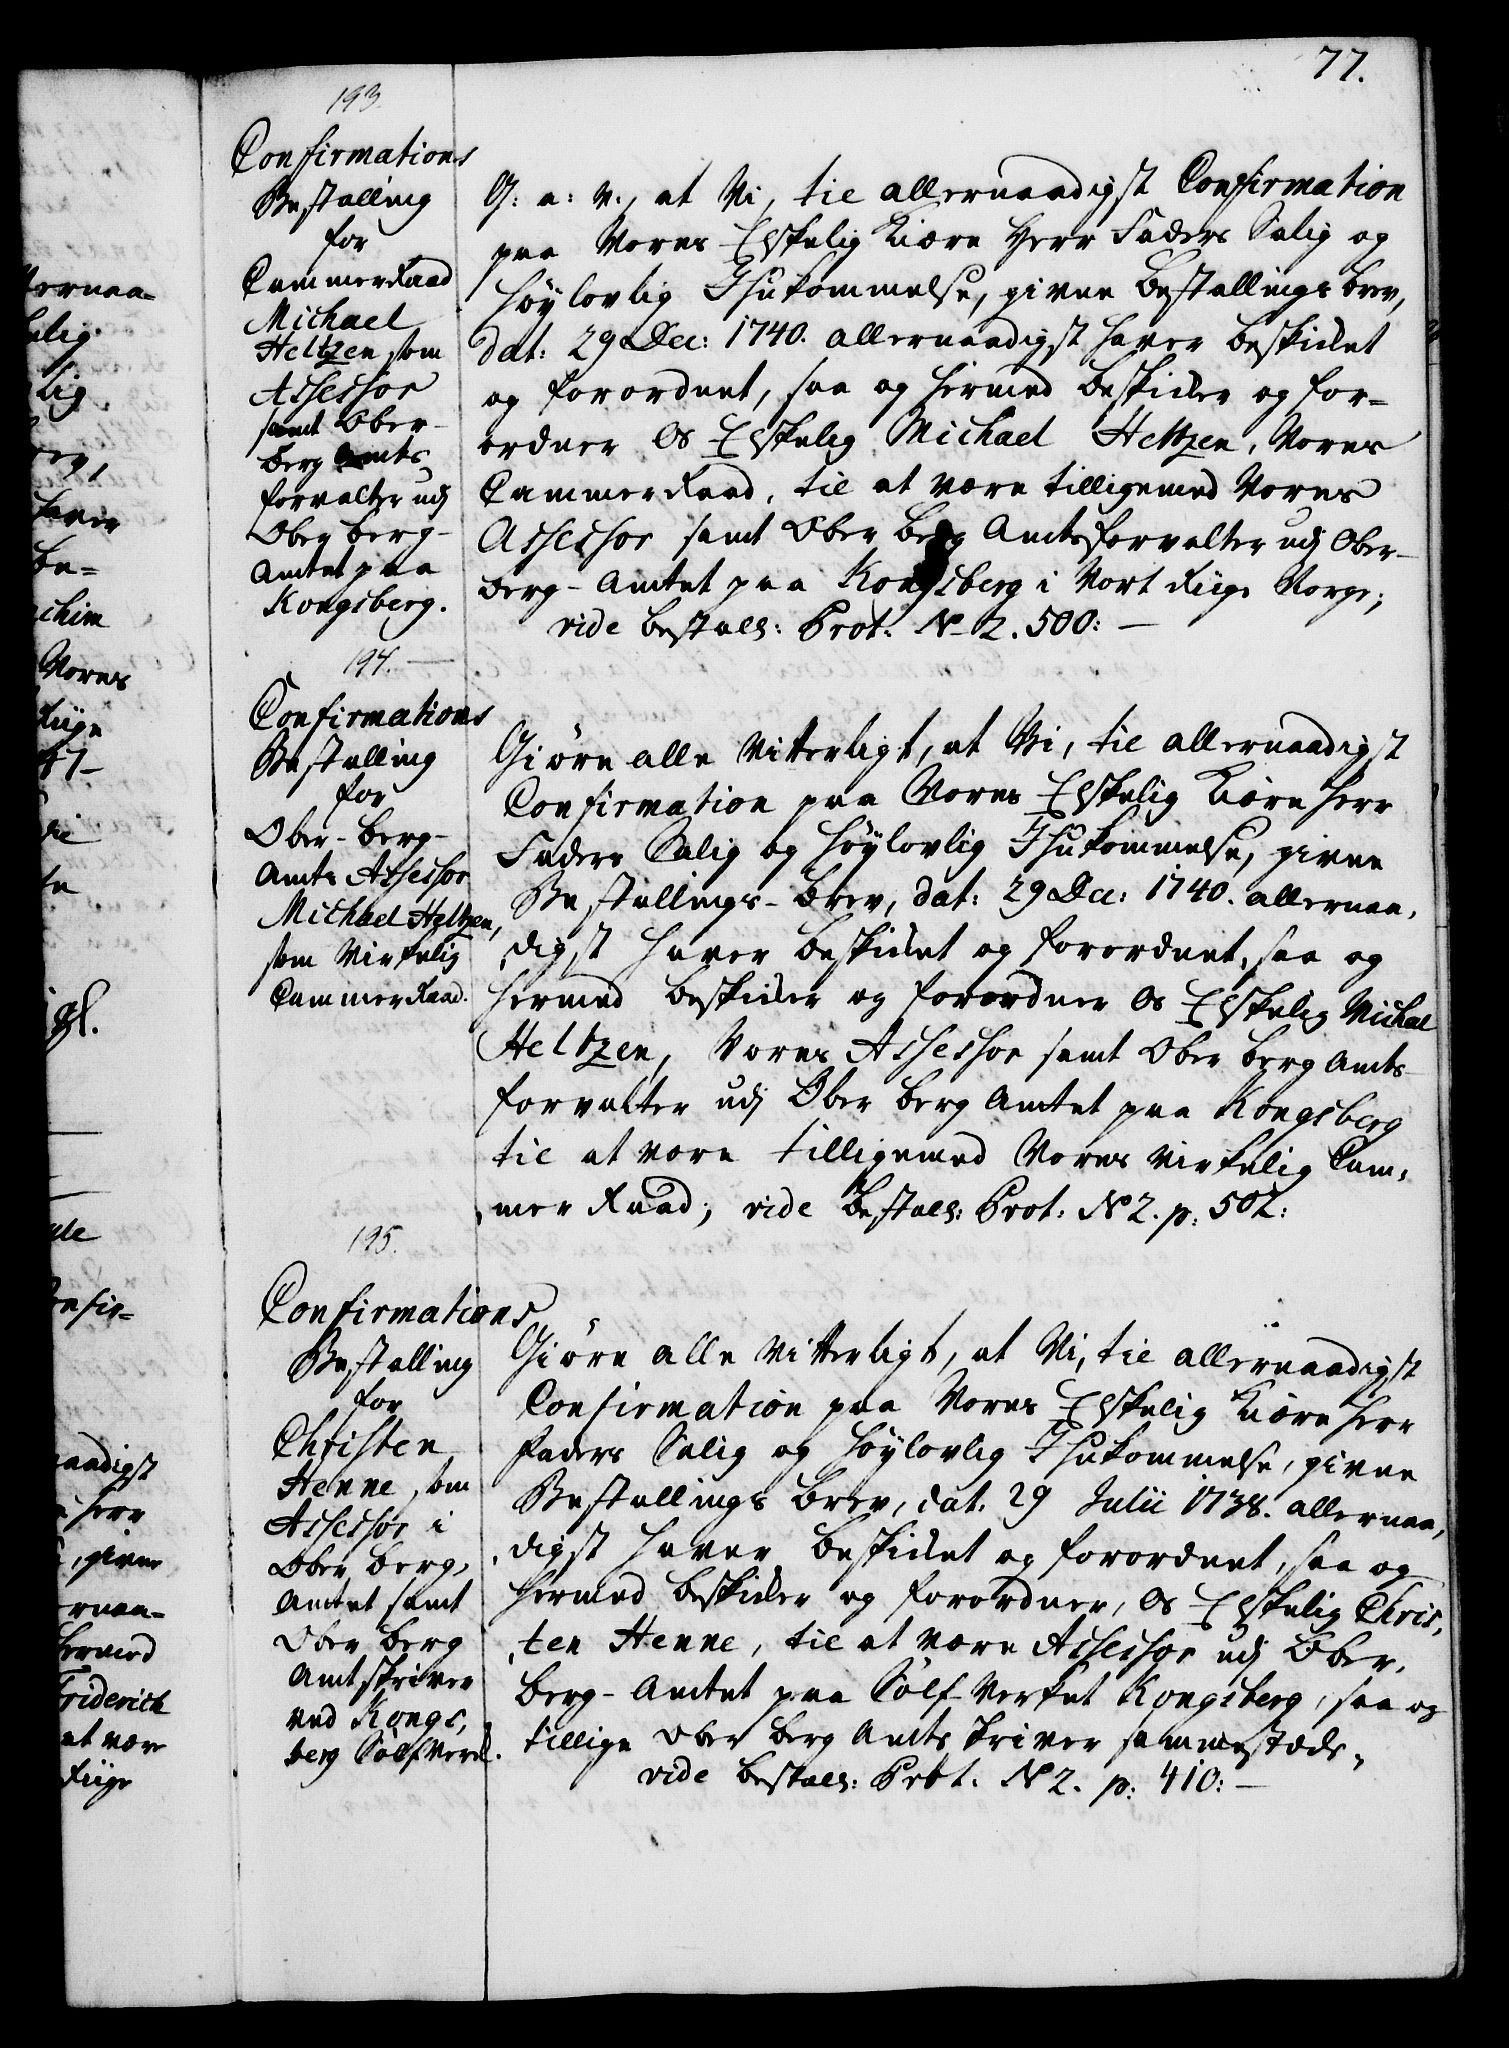 77.
193.
Confirmations
Bestalling
for
CammerRaad
Michael
Heltzen som
Assessor
samt Ober-
berg Amts
forvalter udj
Ober berg-
Amtet paa
Kongsberg.
G: a: V., at Vi, til allernaadigst Confirmation
paa Vores Elskelig Kiære Herr Faders Salig og
Höylovlig Ihukommelse, givne Bestallings brev,
dat: 29 Dec: 1740. allernaadigst haver beskikket
og forordnet, saa og hermed beskikker og for-
ordner Os Elskelig Michael Heltzen, Vores
CammerRaad, til at være tilligemed Vores
Assessor samt Ober Berg Amtsforvalter udj Ober-
berg-Amtet paa Kongsberg i Vort Riige Norge;
vide bestall: Prot: N 2. 500:
194.
Confirmations
Bestalling
for
Ober-berg-
Amts Assessor
Michael Heltzen,
som Virkelig
CammerRaad.
Giöre alle Vitterligt, at Vi, til allernaadigst
Confirmation paa Vores Elskelig Kiære Herr
Faders Salig og Höylovlig Ihukommelse, givne
Bestallings-brev, dat: 29 Dec: 1740. allernaa,
digst haver beskikket og forordnet, saa og
hermed beskikker og forordner Os Elskelig Michael
Heltzen, Vores Assessor samt Ober berg Amts
forvalter udj Ober berg Amtet paa Kongsberg
til at være tilligemed Vores Virkelig Cam,
mer Raad; vide Bestall: Prot: N 2. p: 502:
195.
Confirmations
Bestalling
for
Christen
Henne som
Assessor i
Ober berg,
Amtet samt
Ober berg
Amtskriver
ved Kongs,
berg Sölfverk.
Giöre alle Vitterligt, at Vi, til allernaadigst
Confirmation paa Vores Elskelig Kiære Herr
Faders Salig og Höylovlig Ihukommelse, givne
Bestallings brev, dat. 29 Julii 1738. allernaa,
digst haver beskikket og forordnet, saa og
hermed beskikker og forordner, Os Elskelig Chris,
ten Henne, til at være Assessor udj Ober,
berg-Amtet paa Sölf-Verket Kongsberg, saa og
tillige Ober berg Amts Skriver sammestæds,
vide bestall: Prot. N 2. p: 410: